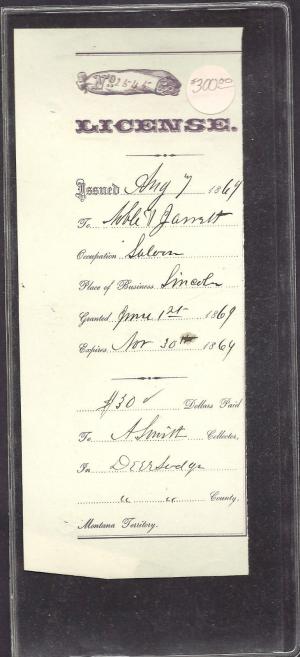 No. 2545
$300.00
LICENSE.
Issued Aug 7 1869
To Noble & Jarrett
Occupation Saloon
Place of Business Lincoln
Granted June 1st 1869
Expires Nov 30th 1869
$30 Dollars Paid
To A Smith Collector,
In Deer Lodge
" " County.
Montana Territory.